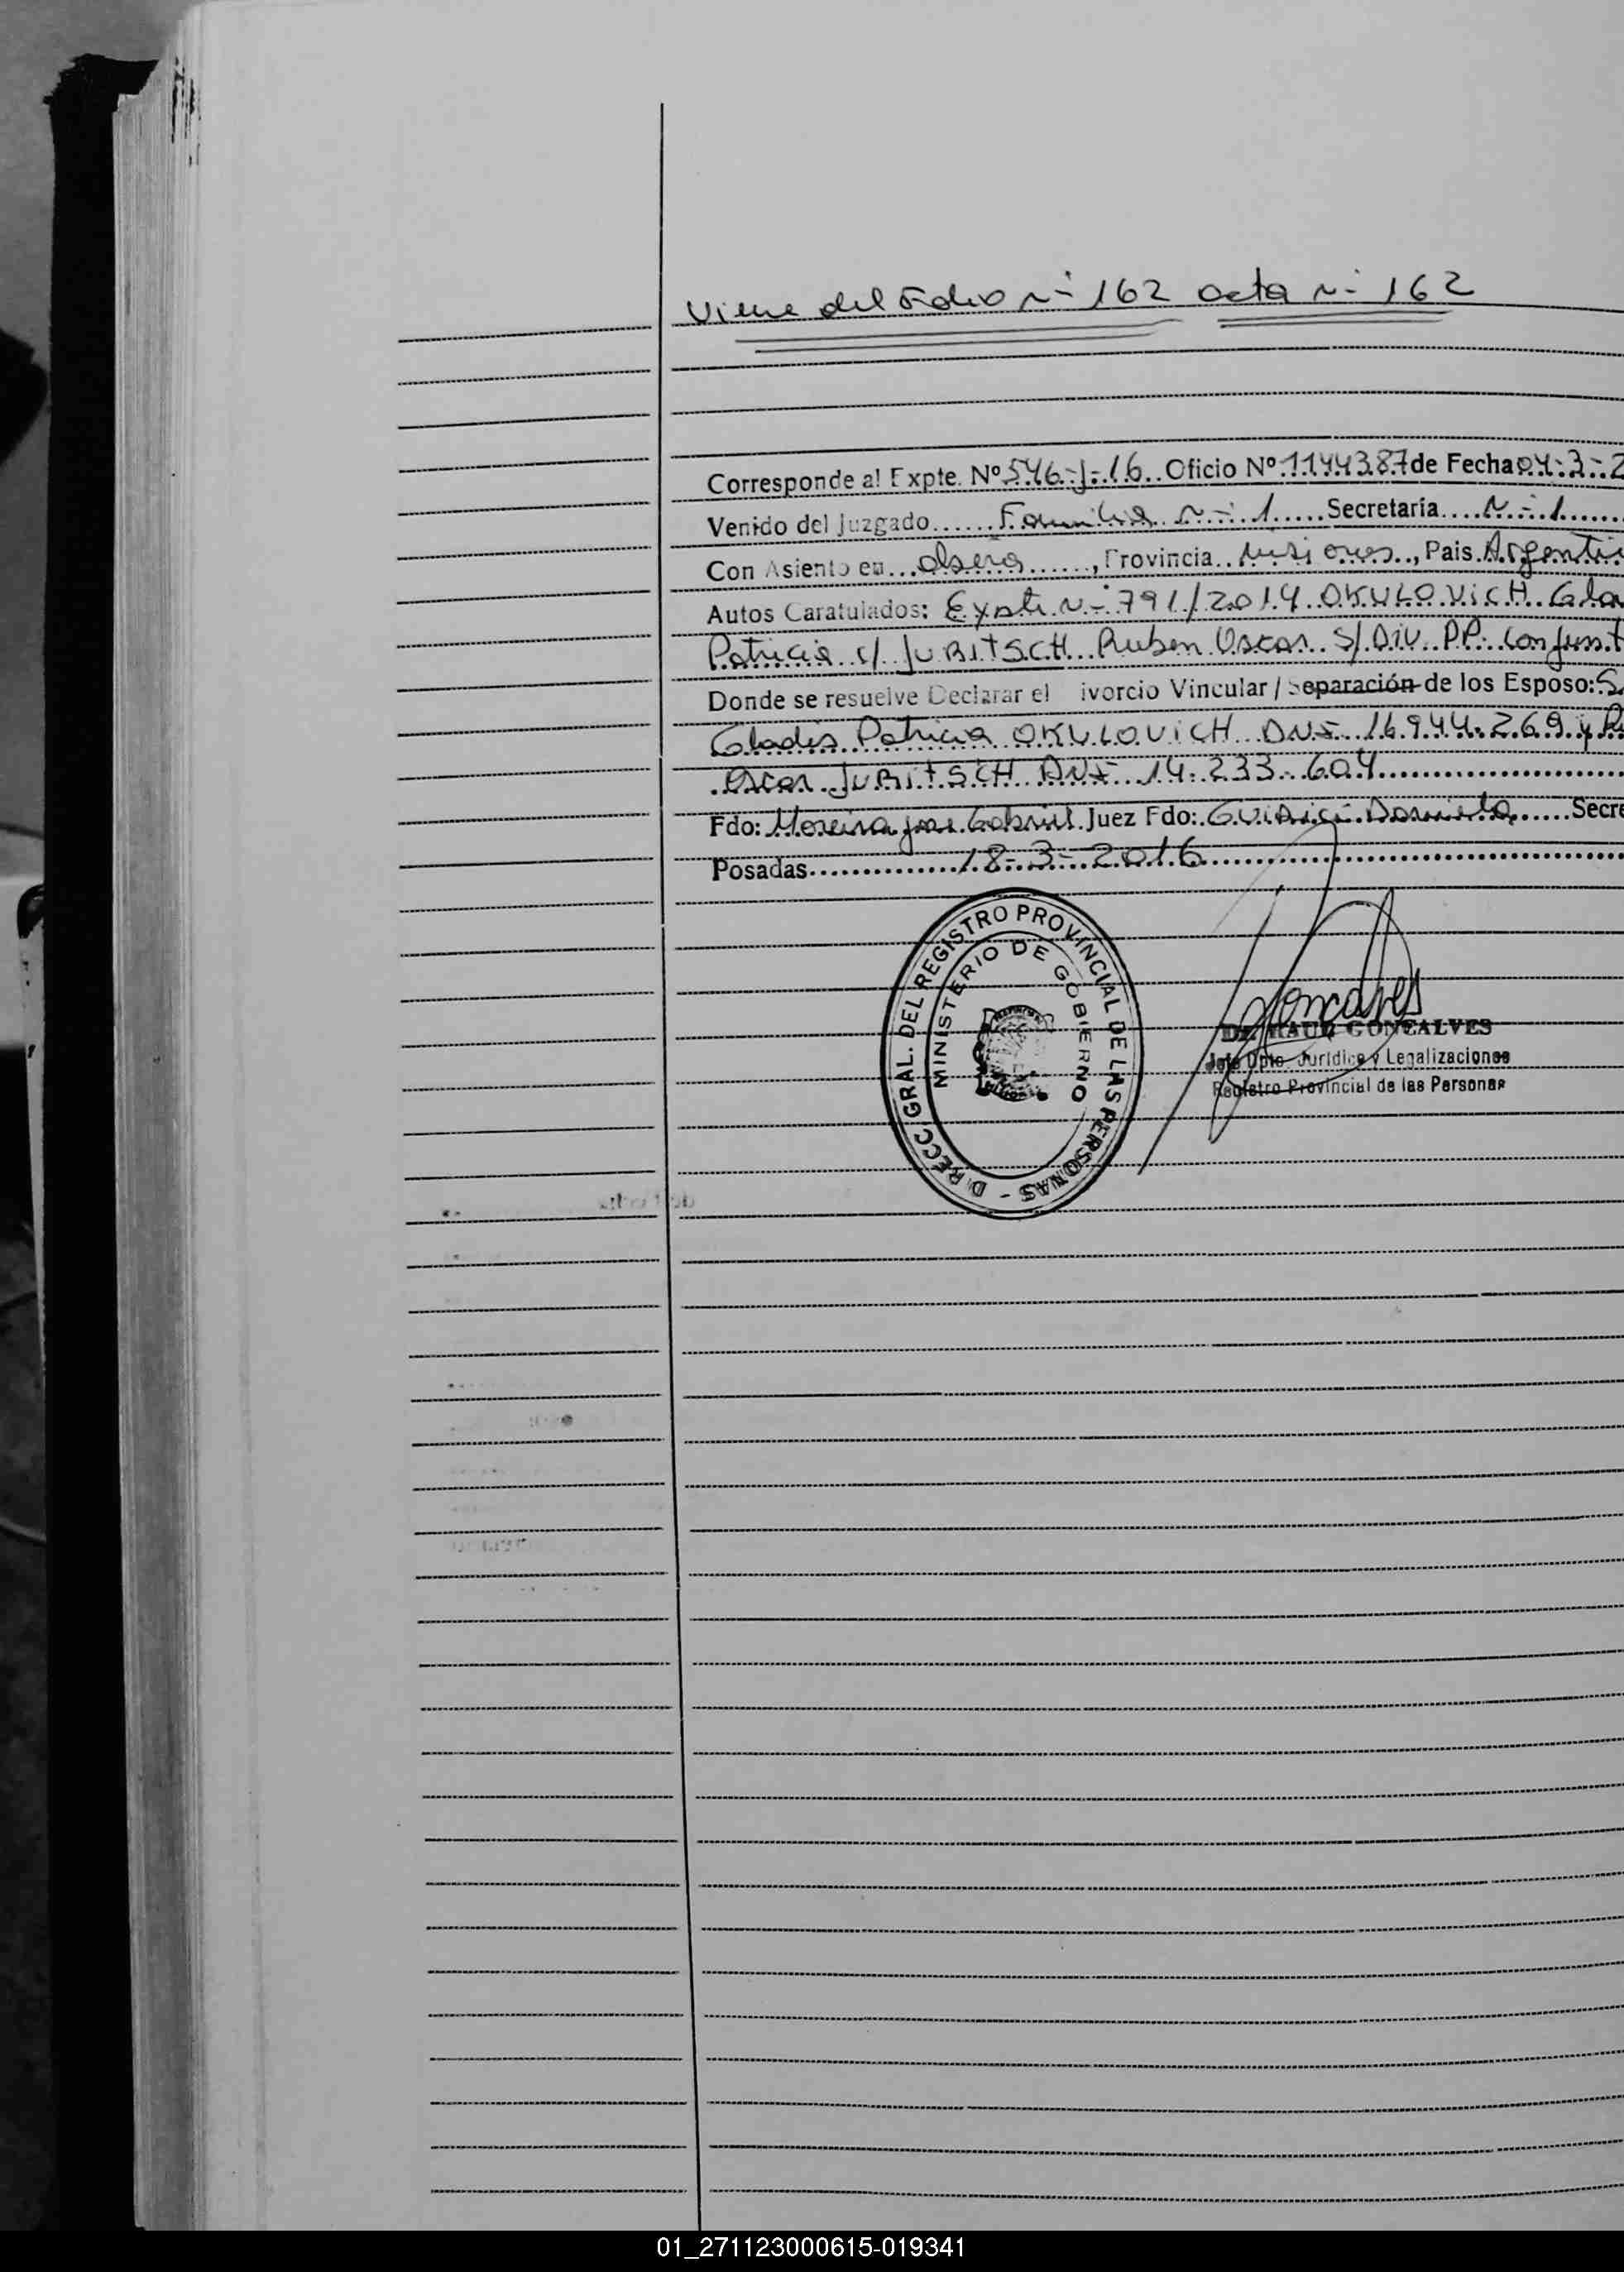 Viene del Folio N- 162 acta N- 162
Corresponde al Expte. Nº 546-J-16 Oficio Nº 1144387 de Fecha 04-3-2
Venido del Juzgado Familia N- 1 Secretaría N-1
Con Asiento en Oberá, Provincia Misiones, Pais Argenti
Autos Caratulados: Expte N- 791/2014 OKULOVICH Gla
Patricia c/ JURITSCH Ruben Oscar S/ Div. PP.
Donde se resuelve Declarar el ivorcio Vincular / Separación de los Esposo: S
Gladis Patricia OKULOVICH DNI 16.944.269 y R
Oscar JURITSCH DNI 14.233.604
Fdo: Moreira Jose Gabriel Juez Fdo: Guidici Daniela Secre
Posadas 18-3-2016
DIRECC. GRAL. DEL REGISTRO PROVINCIAL DE LAS PERSONAS -
MINISTERIO DE GOBIERNO
Goncalves
Dr. RAUL GONCALVES
Jefe Dpto. Jurídico y Legalizaciones
Registro Provincial de las Personas
01_271123000615-019341